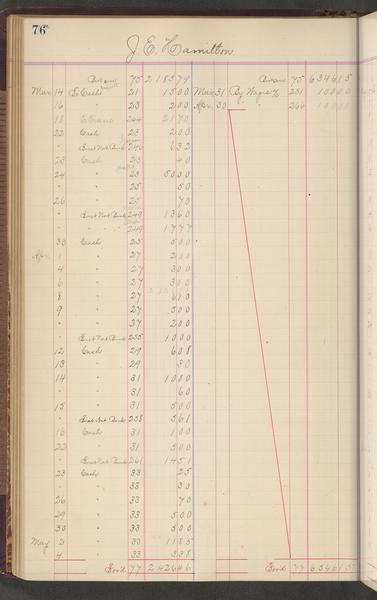 76
J. E. Hamilton
75 2 185 79 75 6346 15
Mar 14 To Cash 21 15 00 Mar 31 By Wages 231 100 00
16 " 23 2 00 Apr 30 " 266 100 00
18 E. Evans 244 21 70
22 Cash 23 2 00
" First Nat Bank 246 6 32
23 Cash 23 40
24 " 23 50 00
" " 25 50
26 " 25 70
" First Nat Bank 249 13 60
" " " " 249 17 77
30 Cash 25 5 00
Apr 1 " 27 2 00
4 " 27 3 00
6 " 27 3 00
8 " 27 6 10
9 " 27 5 00
" " 27 2 00
" First Nat Bank 255 10 00
12 Cash 29 6 08
13 " 29 30
14 " 31 10 00
" " 31 60
15 " 31 5 00
" First Nat Bank 258 5 61
16 Cash 31 1 00
22 " 31 5 00
" First Nat Bank 261 14 51
23 Cash 33 25
" " 33 30
26 " 33 70
29 " 33 5 00
30 " 33 5 00
May 2 " 33 11 85
4 " 33 3 38
Ford 77 2 426 46 Ford 77 6546 15